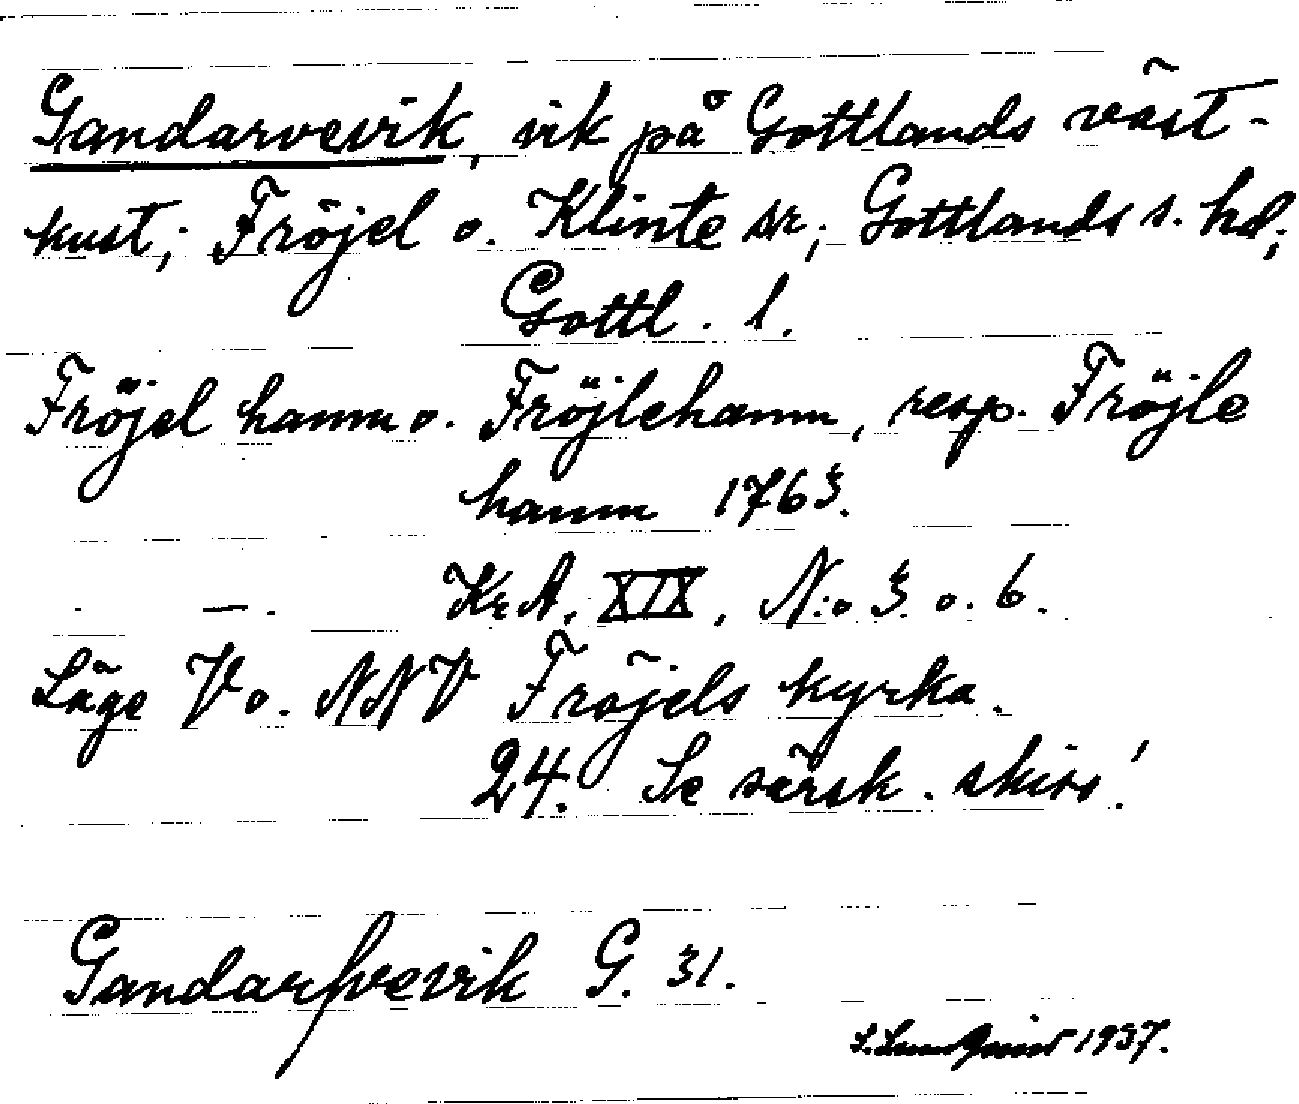 Gandarvevik, vik på Gottlands väst-
kust; Fröjel o. Klinte sr; Gottlands s. hd;
Gottl. l.
Fröjel hamn o. Fröjlehamn, resp. Fröjle
hamn 1763.
- — - KrA. XIX, N:o 3 o. 6.
Läge V o. NNV Fröjels kyrka.
24. Se särsk. skiss!
Gandarfvevik G. 31.
S. Lundqvist 1937.